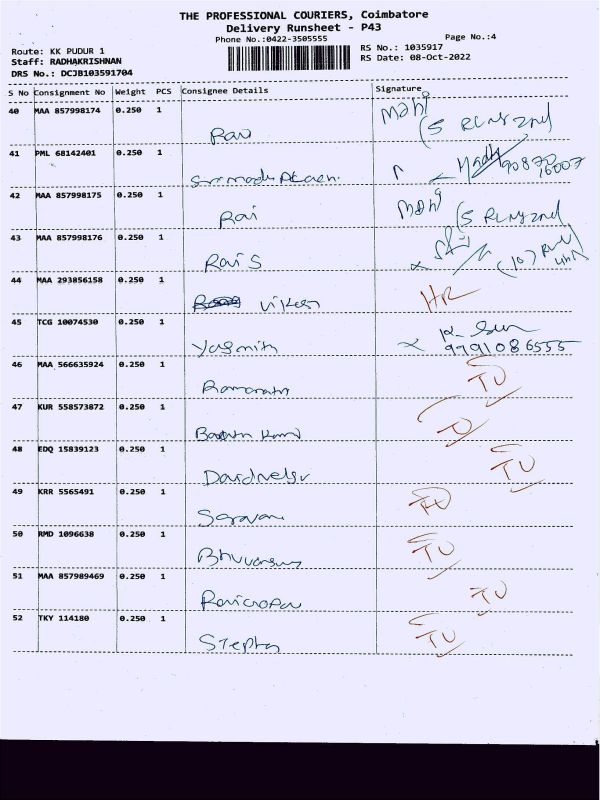 THE PROFESSIONAL COURIERS, Coimbatore
Delivery Runsheet - P43
Phone No.:0422-3505555
Page No.:4
Route: KK PUDUR 1
RS No.: 1035917
Staff: RADHAKRISHNAN
RS Date: 08-Oct-2022
DRS No.: DCJB103591704
S No Consignment No Weight PCS Consignee Details Signature
40 MAA 857998174 0.250 1 Ravi
41 PML 68142401 0.250 1
42 MAA 857998175 0.250 1 Ravi
43 MAA 857998176 0.250 1 Ravi S
44 MAA 293856158 0.250 1 Vikesh HR
45 TCG 10074530 0.250 1 Yasmith 9791086555
46 MAA 566635924 0.250 1 TU
47 KUR 558573872 0.250 1 TU
48 EDQ 15839123 0.250 1 TU
49 KRR 5565491 0.250 1 TU
50 RMD 1096638 0.250 1 TU
51 MAA 857989469 0.250 1 TU
52 TKY 114180 0.250 1 TU